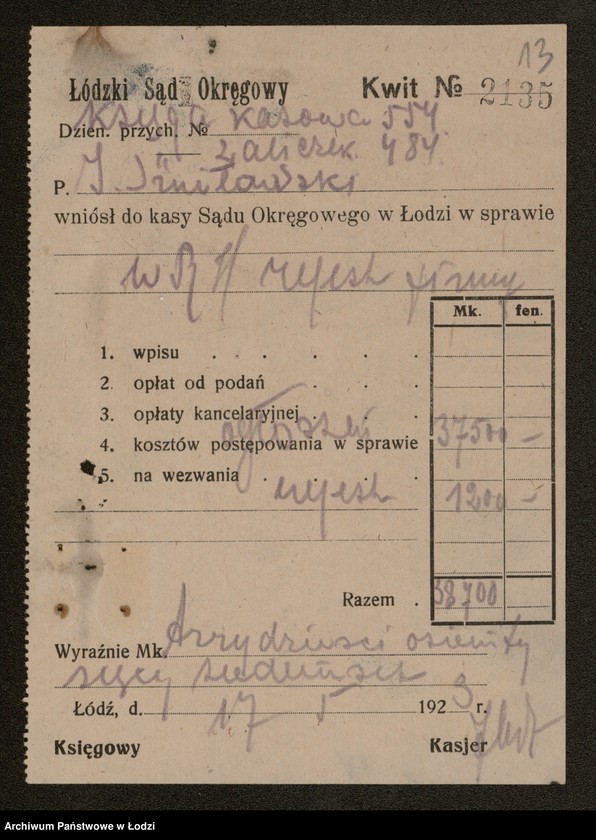 13
Łódzki Sąd Okręgowy Kwit № 2135
Księga kasowa 554
Dzien. przych. №
zaliczek 484
P. J.
wniósł do kasy Sądu Okręgowego w Łodzi w sprawie
w R H rejestr firmy
Mk. fen.
1. wpisu
2. opłat od podań
3. opłaty kancelaryjnej
ogłoszeń 37500 —
4. kosztów postępowania w sprawie
5. na wezwania
rejestr 1200 —
Razem 38700
Wyraźnie Mk. trzydzieści ośiemty
sięcy siedemset
Łódź, d. 17 5 1923 r.
Księgowy Kasjer
Archiwum Państwowe w Łodzi